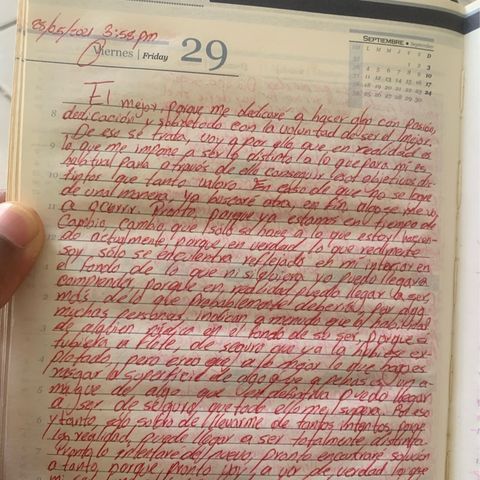 25/05/2021 3:58pm
Viernes | Friday 29
SEPTIEMBRE • September
L M M J V S D
1 2 3
4 5 6 7 8 9 10
11 12 13 14 15 16 17
18 19 20 21 22 23 24
25 26 27 28 29 30
El mejor, porque me dedicaré a hacer algo con pasión,
8 dedicación y sobretodo con la voluntad de ser el mejor.
De eso se trata, voy a por ello, que en realidad es
9 lo que me impone a ser lo distinto a lo que para mi es
habitual para a través de ello conseguir esos objetivos dis-
10 tintos que tanto valoro. En caso de que no se logre
de una manera, ya buscaré otra, en fin, algo se me va
11 a ocurrir. Pronto, porque ya estamos en tiempo de
cambio, cambio que solo se hace a lo que estoy hacien-
12 do actualmente, porque en verdad lo que realmente
soy solo se encuentra reflejado en mi interior en
1 el fondo de lo que ni siquiera yo puedo llegar a
comprender, porque en realidad puedo llegar a ser
2 más de lo que probablemente debería, por algo
muchas personas, indican a menudo que la habilidad
3 de alguien radica en el fondo de su ser, porque si
tubiera a flote, de seguro que ya la hubiese ex-
4 plotado pero creo que a lo mejor lo que hago es
rasgar la superficie de algo que apenas es un a-
5 mague de algo que en definitiva puedo llegar
a ser de seguro, que todo ello me supera. Por eso
6 y tanto, solo sobro de llevarme de tantos intentos, porque
la realidad, puede llegar a ser totalmente distinta.
pronto lo intentaré de nuevo. Pronto encontraré solución
a tanto, porque pronto voy a por de verdad lo que